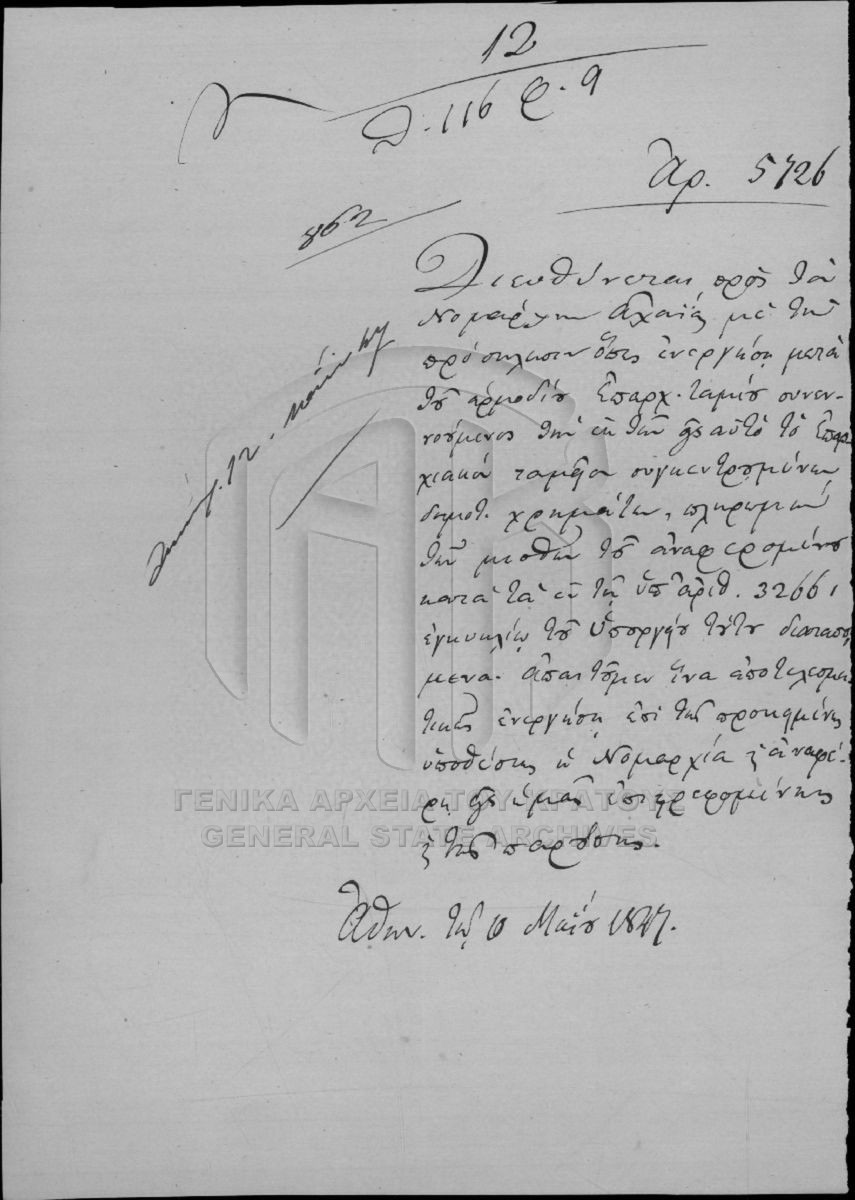 12
Δ. 116 Φ. 9
Ἀρ. 5726
862
Διευθύνεται πρὸς τὸν
Νομάρχην Ἀχαΐας μὲ τὴν
πρόσκλησιν ὅπως ἐνεργήσῃ μετὰ
τοῦ ἁρμοδίου Ἐπαρχ. ταμίου συνεν-
νοούμενος τὴν ἐκ τῶν εἰς αὐτὸ τὸ Ἐπαρ-
χιακὸν ταμεῖον συγκεντρωμένων
δημοτ. χρημάτων, πληρωμὴν
τῶν μισθῶν τοῦ ἀναφερομένου
κατὰ τὰ ἐν τῇ ὑπ' ἀριθ. 32661
ἐγκυκλίῳ τοῦ Ὑπουργείου τούτου διατασσό
μενα. ἀπαιτοῦμεν ἵνα ἀποτελεσμα
τικῶς ἐνεργήσῃ ἐπὶ τῆς προκειμένης
ὑποθέσεως ἡ Νομαρχία καὶ ἀναφέ-
ρῃ εἰς ἡμᾶς ἐπιστρεφομένης
καὶ τῆς παρούσης.
Ἀθην. τῇ 10 Μαΐου 1847.
ΓΕΝΙΚΑ ΑΡΧΕΙΑ ΤΟΥ ΚΡΑΤΟΥΣ
GENERAL STATE ARCHIVES